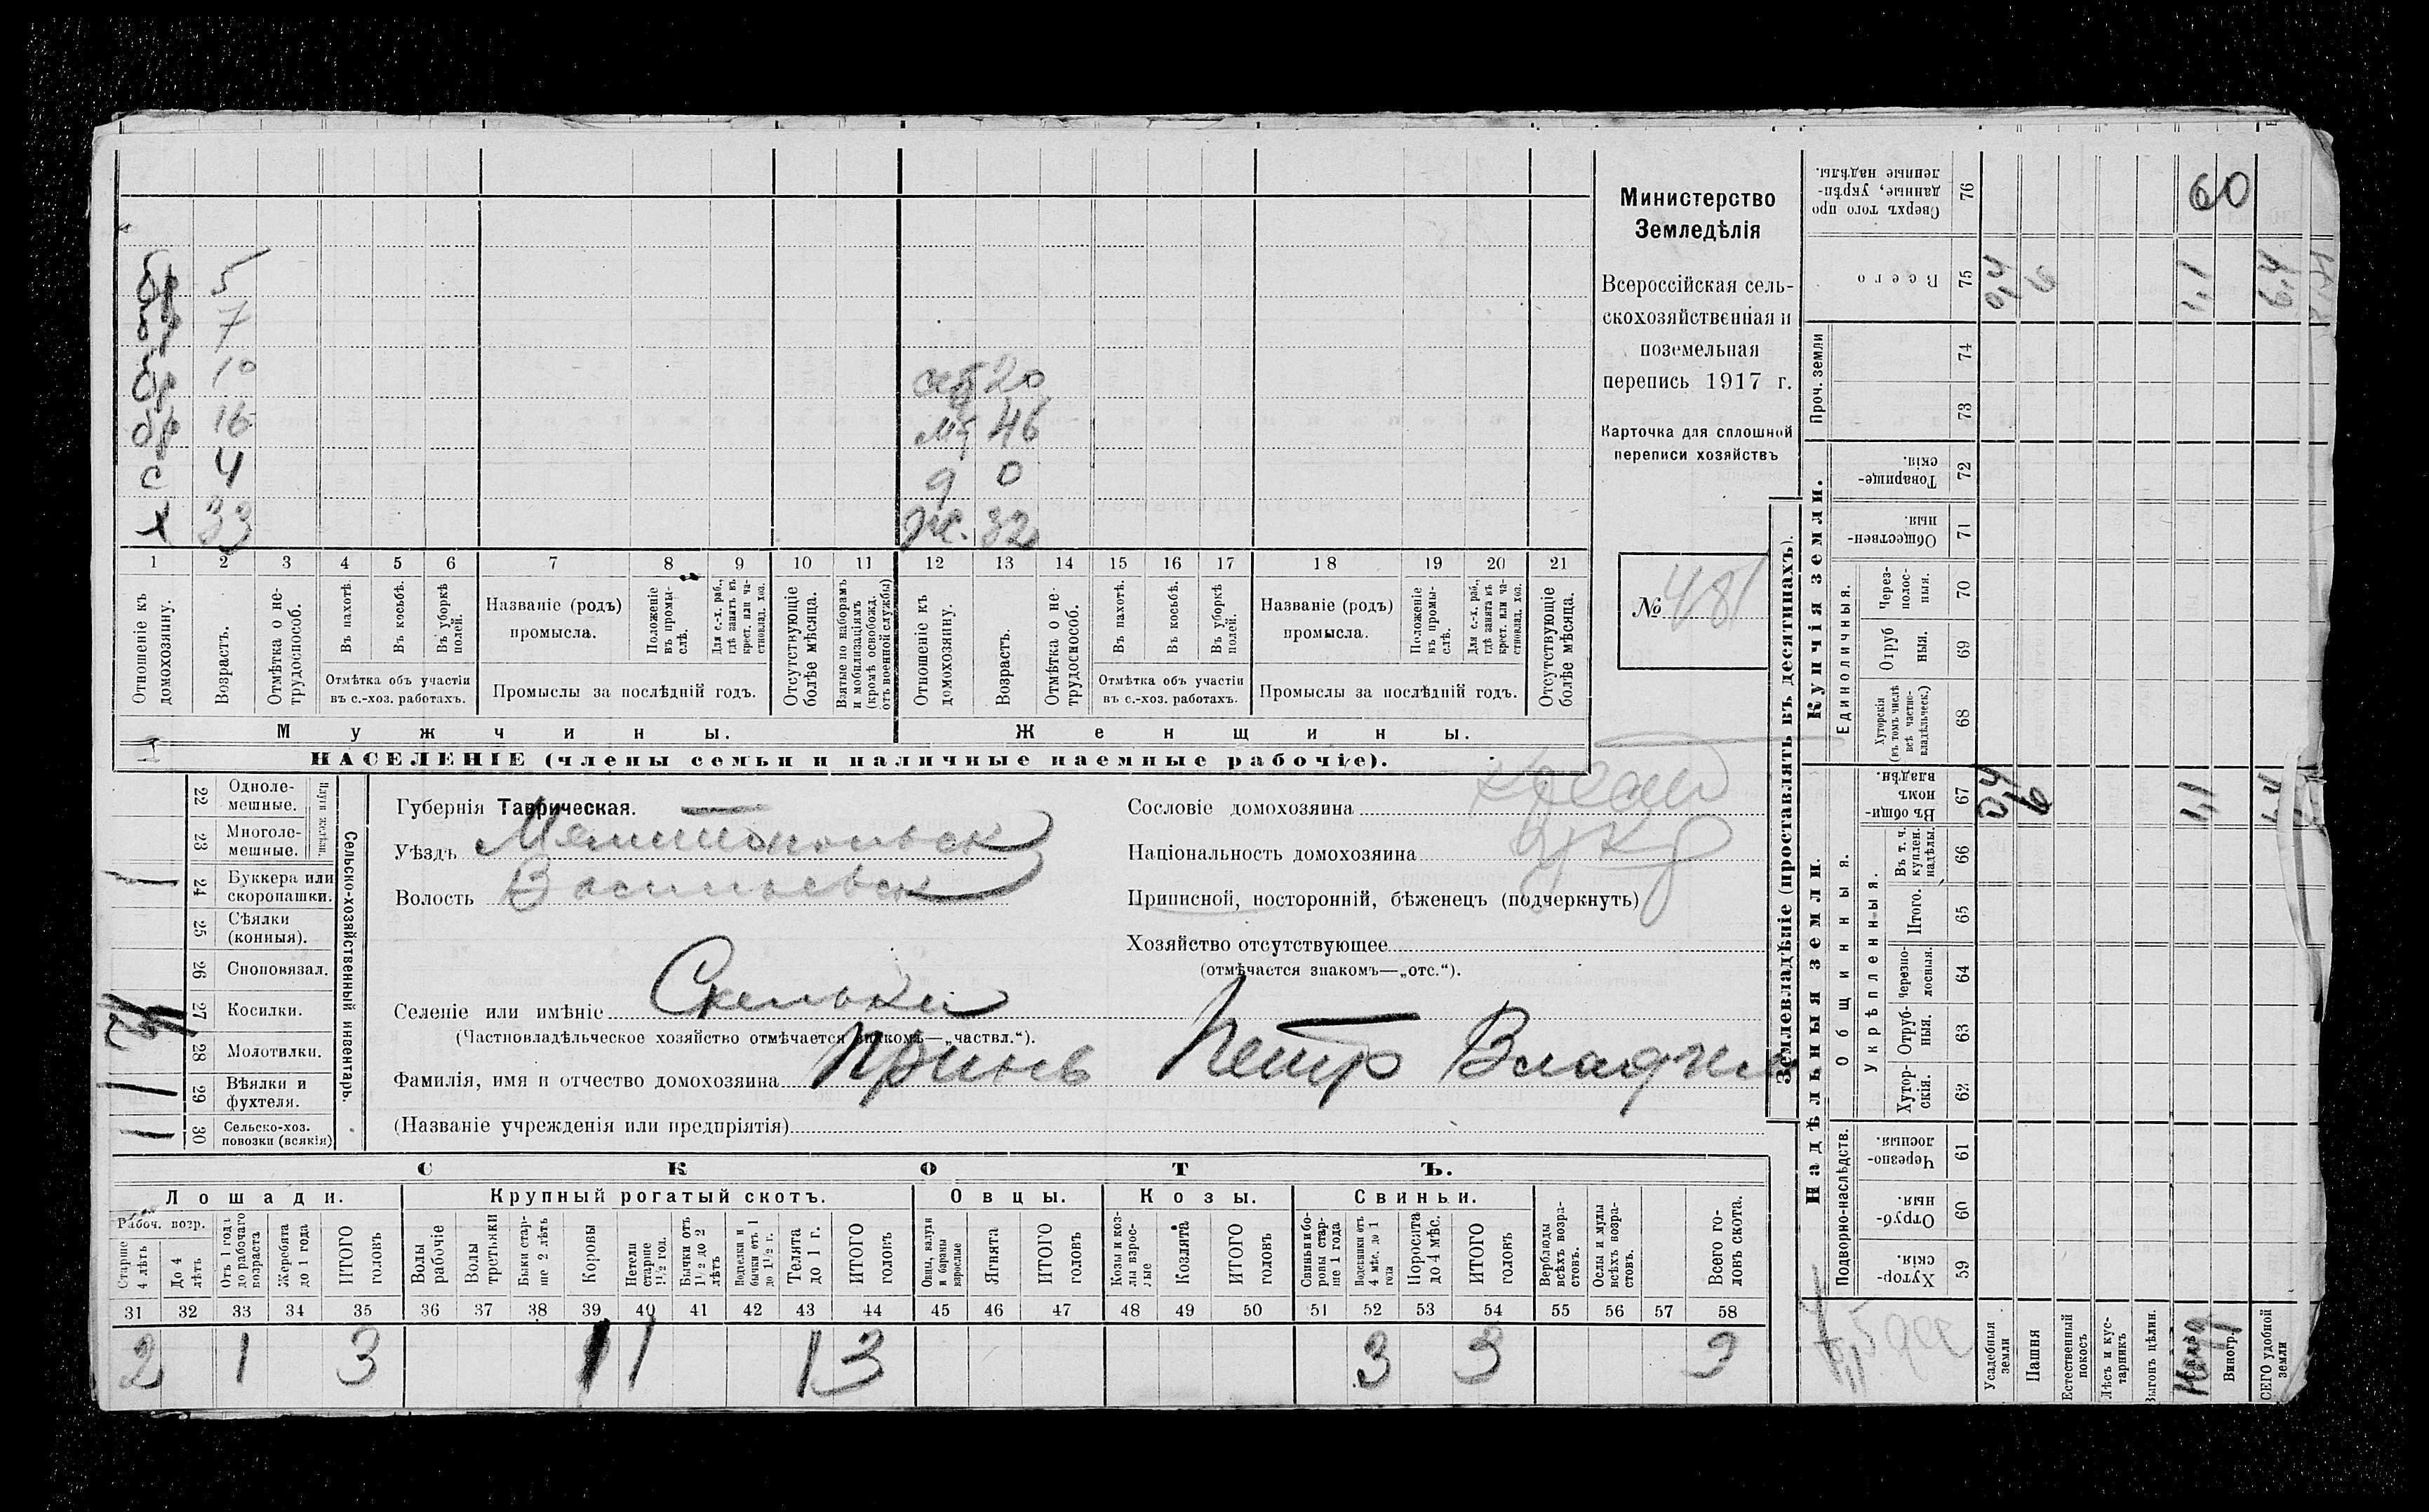 бр 5
бр 7
бр 10
бр 16
с 4
х 33
сб 20
мт 46
д 0
ж. 32
1 2 3 4 5 6 7 8 9 10 11 12 13 14 15 16 17 18 19 20 21
Отношеніе къ домохозяину.
Возрастъ.
Отмѣтка о нетрудоспособ.
Въ пахотѣ.
Въ косьбѣ.
Въ уборкѣ полей.
Отмѣтка объ участіи
въ с.-хоз. работахъ.
Названіе (родъ)
промысла.
Положеніе въ промыслѣ.
Для с.-х. раб., гдѣ занятъ въ крест. или частновлад. хоз.
Промыслы за послѣдній годъ.
Отсутствующіе болѣе мѣсяца.
Взятые по наборамъ и мобилизаціямъ (кромѣ освобожд. отъ военной службы)
Отношеніе къ домохозяину.
Возрастъ.
Отмѣтка о нетрудоспособ.
Въ пахотѣ.
Въ косьбѣ.
Въ уборкѣ полей.
Отмѣтка объ участіи
въ с.-хоз. работахъ.
Названіе (родъ)
промысла.
Положеніе въ промыслѣ.
Для с.-х. раб., гдѣ занята въ крест. или частновлад. хоз.
Промыслы за послѣдній годъ.
Отсутствующіе болѣе мѣсяца.
Мужчины.
Женщины.
НАСЕЛЕНІЕ (члены семьи и наличные наемные рабочіе).
Министерство
Земледѣлія
Всероссійская сель-
скохозяйственная и
поземельная
перепись 1917 г.
Карточка для сплошной
переписи хозяйствъ
№ 481
22 Одноле-
мешные.
23 Многоле-
мешные.
24 Буккера или
скоропашки.
25 Сѣялки
(конныя).
26 Сноповязал.
27 Косилки.
28 Молотилки.
29 Вѣялки и
фухтеля.
30 Сельско-хоз.
повозки (всякія)
Сельско-хозяйственный инвентарь.
Губернія Таврическая.
Уѣздъ Мелитопольск
Волость Васильевск
Селеніе или имѣніе Скельки
(Частновладѣльческое хозяйство отмѣчается знакомъ—„частвл.“).
Фамилія, имя и отчество домохозяина Петр Владим
(Названіе учрежденія или предпріятія)
Сословіе домохозяина
Національность домохозяина укр
Приписной, посторонній, бѣженецъ (подчеркнуть)
Хозяйство отсутствующее
(отмѣчается знакомъ—„отс.“).
СКОТЪ.
Лошади.
Крупный рогатый скотъ.
Овцы.
Козы.
Свиньи.
Рабоч. возр.
Старше 4 лѣтъ
До 4 лѣтъ
Отъ 1 года до рабочаго возраста
Жеребята до 1 года
ИТОГО головъ
Волы рабочіе
Волы третьяки
Быки старше 2 лѣтъ
Коровы
Нетели старше 1½ год.
Бычки отъ 1½ до 2 лѣтъ
Водтелки и бычки отъ 1 до 1½ г.
Телята до 1 г.
ИТОГО головъ
Овцы, валухи и бараны взрослые
Ягнята
ИТОГО головъ
Козы и козлы взрослые
Козлята
ИТОГО головъ
Свиньи боровы старше 1 года
Подсвинки отъ 4 мѣс. до 1 года
Поросята до 4 мѣс.
ИТОГО головъ
Верблюды всѣхъ возрастовъ.
Ослы и мулы всѣхъ возрастовъ.
Всего головъ скота.
31 32 33 34 35 36 37 38 39 40 41 42 43 44 45 46 47 48 49 50 51 52 53 54 55 56 57 58
2 1 3 1 1 1 3 3 3 9
Землевладѣніе (проставлять въ десятинахъ).
Купчія земли.
Надѣльныя земли.
Сверхъ того проданные, укрѣпленные надѣлы. 76
Всего 75
Проч. земли
74
73
Товарищескія. 72
Общественныя. 71
Единоличныя.
Черезполосныя. 70
Отрубныя. 69
Хуторскія (въ томъ числѣ всѣ частновладѣльческ.) 68
Въ общинномъ владѣн. 67
Общинныя.
Укрѣпленныя.
Въ т. ч. куплен. надѣлы. 66
Итого. 65
Черезполосныя. 64
Отрубныя. 63
Хуторскія. 62
Подворно-наслѣдств.
Черезполосныя. 61
Отрубныя. 60
Хуторскія. 59
Усадебныя земли
Пашня
Естественный покосъ
Лѣсъ и кустарникъ
Выгонъ цѣлин.
Виногр.
ВСЕГО удобной земли
60
0,4
6
1,1
6,4
0,4
6
1,1